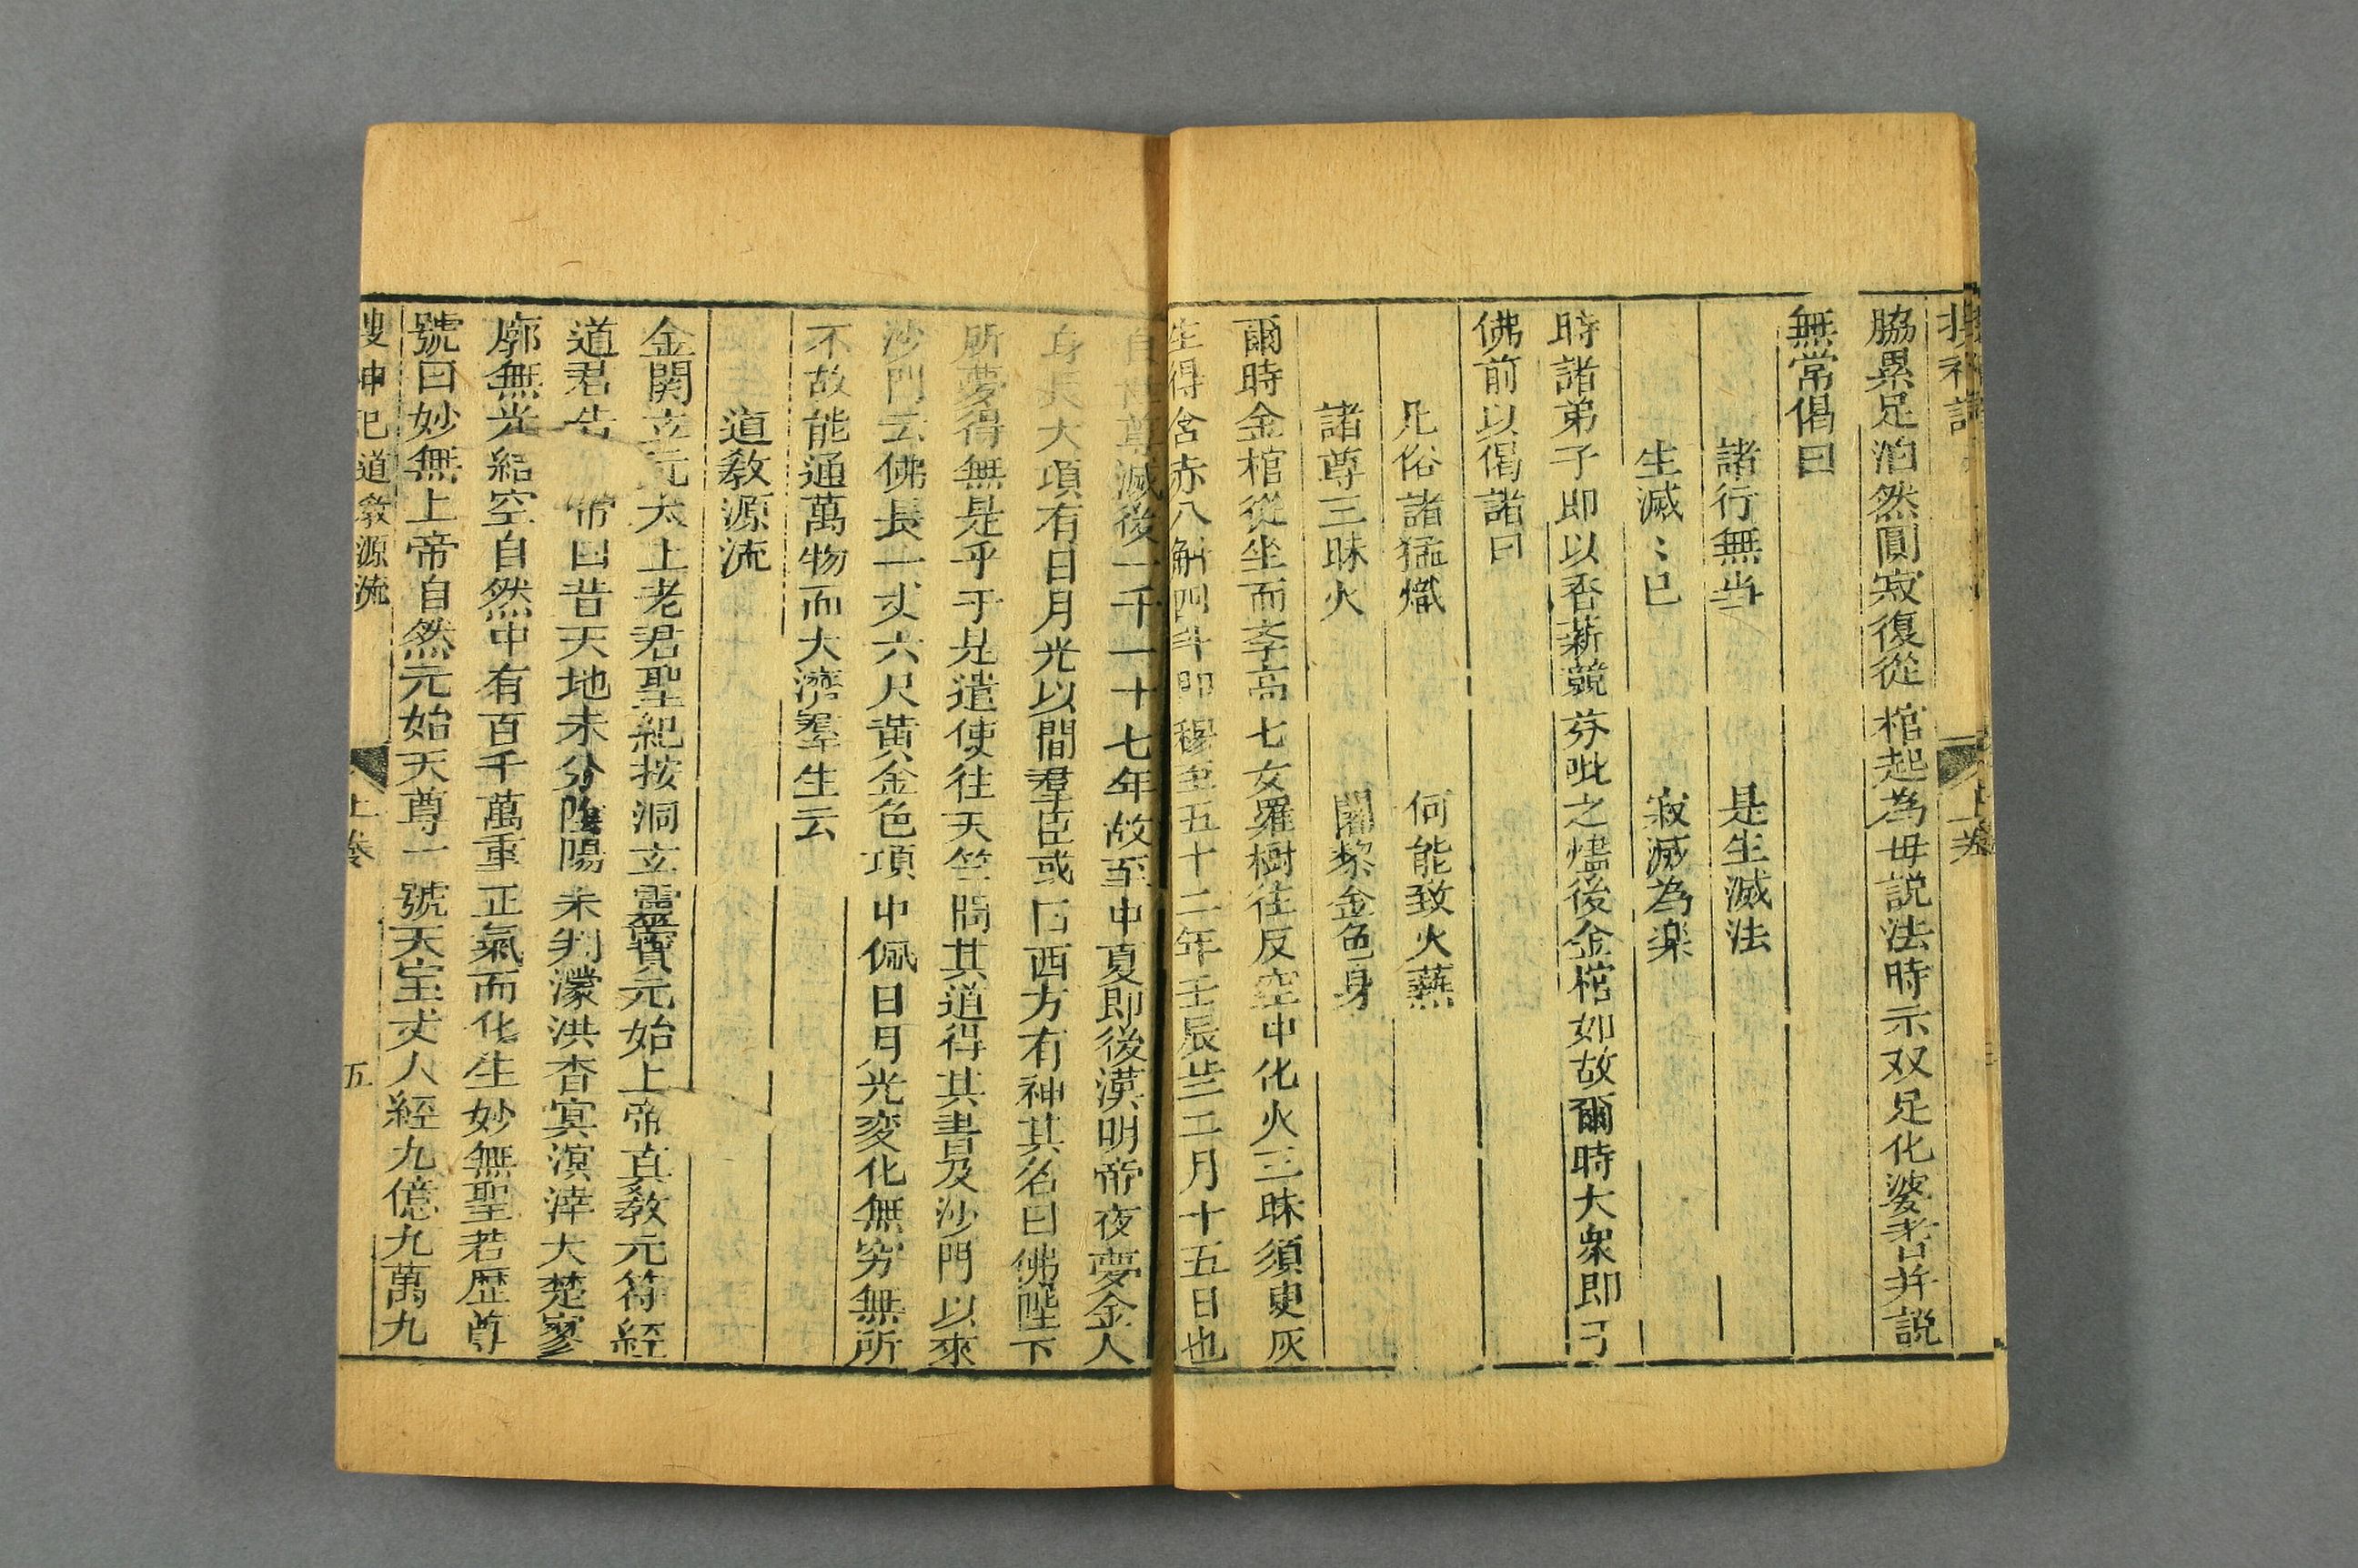 脇累足泊然圓寂復從棺起為毋説法時示双足化婆耆并説
無常偈曰
諸行無当　是生滅法
生滅〻已　寂滅為楽
時諸弟子即以香薪競芬𠯗之燼後金棺如故爾時大衆即
佛前以偈諸曰
凡俗諸猛熾　何能致火爇
諸尊三昧火　闍黎金色身
爾時金棺從坐而李高七女羅樹往反空中化火三昧須臾灰
生得舍赤八斛四斗即穆至五十二年壬辰歲二月十五日也
自世尊滅後一千一十七年故至中夏即後漢明帝夜夢金人
身長大項有日月光以間羣臣或曰西方有神其名曰佛陛下
所夢得無是乎于是遣使往天竺問其道得其書及沙門以來
沙門云佛長一丈六尺黄金色項中佩日月光変化無穷無所
不故能通萬物而大濟羣生云
道教源流
金闕玄元太上老君聖紀按洞玄靈寶元始上帝真教元符経
道君告　帝曰昔天地未分陰陽未判濛洪杳冥溟涬大楚寥
廓無光結空自然中有百千萬重正氣而化生妙無聖若歴尊
號曰妙無上帝自然元始天尊一號天宝丈人経九億九萬九
搜神記　道教源流　上卷　五